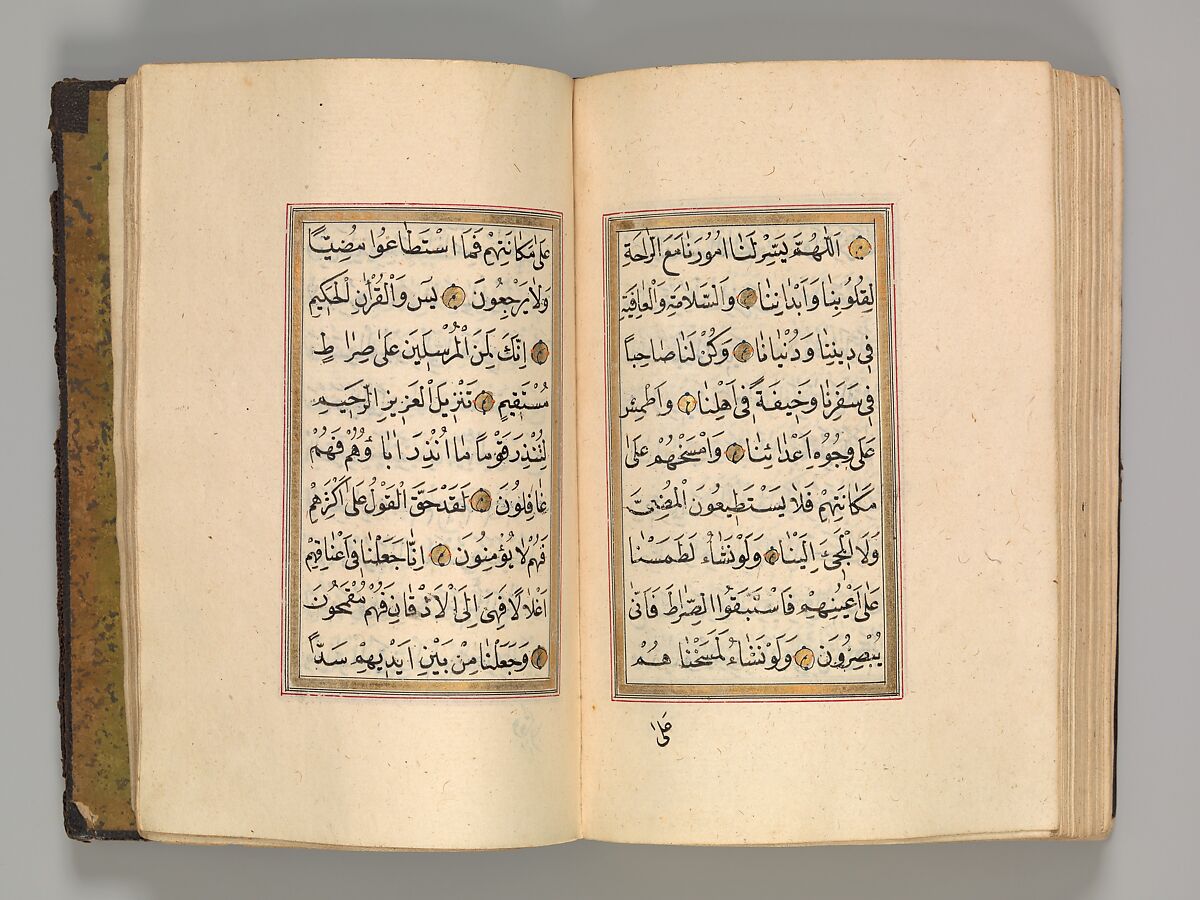 اَللّٰهُمَّ يَسِّرْ لَنَا اُمُورَنَا مَعَ الرَّاحَةِ
لِقُلُوبِنَا وَاَبْدَانِنَا وَالسَّلَامَةِ وَالْعَافِيَةِ
فِي دِينِنَا وَدُنْيَانَا وَكُنْ لَنَا صَاحِبًا
فِي سَفَرِنَا وَخَيفَةً فِي اَهْلِنَا وَاطْمِسْ
عَلٰى وُجُوهِ اَعْدَائِنَا وَامْسَخْهُمْ عَلٰى
مَكَانَتِهِمْ فَلَا يَسْتَطِيعُونَ الْمُضِيَّ
وَلَا الْمَجِئَ اِلَيْنَا وَلَوْ نَشَاءُ لَطَمَسْنَا
عَلٰى اَعْيُنِهِمْ فَاسْتَبَقُوا الصِّرَاطَ فَاَنّٰى
يُبْصِرُونَ وَلَوْ نَشَاءُ لَمَسَخْنَا هُمْ
عَلٰى
عَلٰى مَكَانَتِهِمْ فَمَا اسْتَطَاعُوا مُضِيًّا
وَلَا يَرْجِعُونَ يٰسٓ وَالْقُرْاٰنِ الْحَكِيمِ
اِنَّكَ لَمِنَ الْمُرْسَلِينَ عَلٰى صِرَاطٍ
مُسْتَقِيمٍ تَنْزِيلَ الْعَزِيزِ الرَّحِيمِ
لِتُنْذِرَ قَوْمًا مَا اُنْذِرَ اٰبَاؤُهُمْ فَهُمْ
غَافِلُونَ لَقَدْ حَقَّ الْقَوْلُ عَلٰى اَكْثَرِهِمْ
فَهُمْ لَا يُؤْمِنُونَ اِنَّا جَعَلْنَا فِي اَعْنَاقِهِمْ
اَغْلَالًا فَهِيَ اِلَى الْاَذْقَانِ فَهُمْ مُقْمَحُونَ
وَجَعَلْنَا مِنْ بَيْنِ اَيْدِيهِمْ سَدًّا